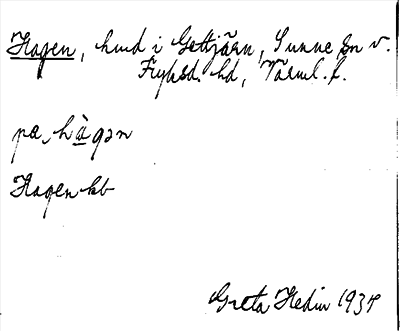 Hagen, hmd i Gettjärn, Sunne sn v.
Fryksd. hd, Värml. l.
pa, hà̠gən
Hagen kb
Greta Hedin 1937